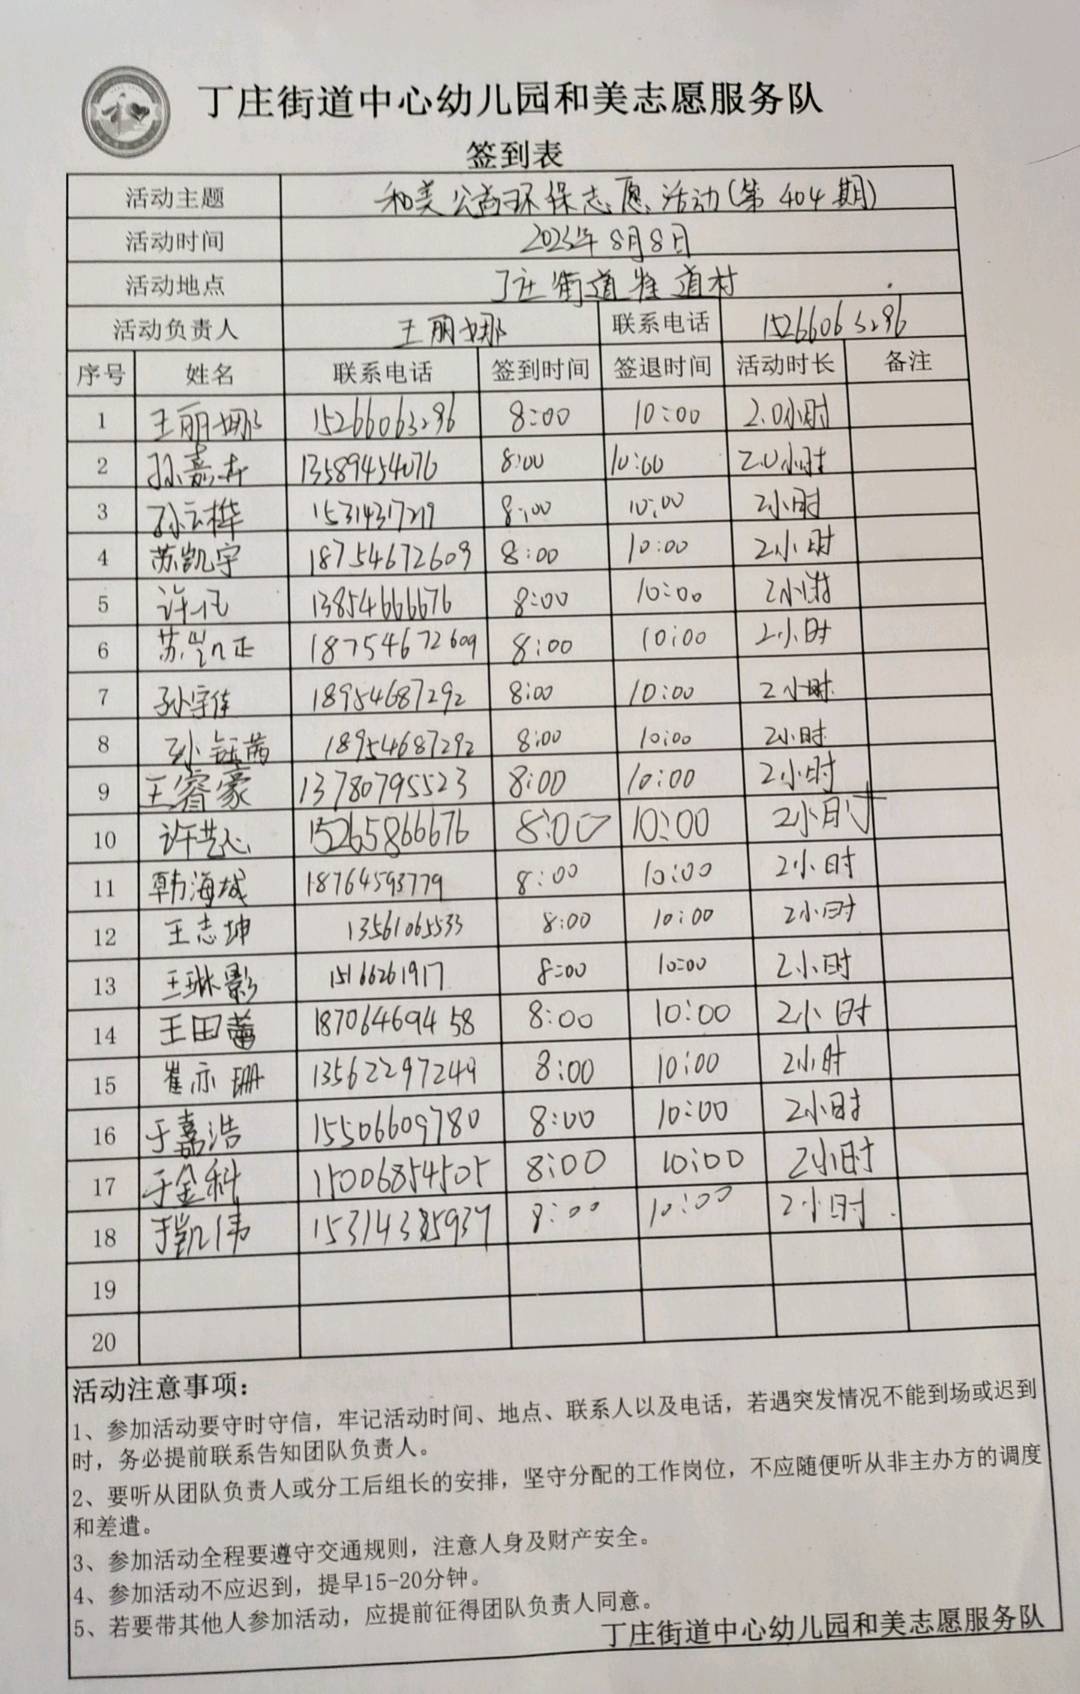 丁庄街道中心幼儿园和美志愿服务队
签到表
活动主题 和美公益环保志愿活动(第404期)
活动时间 2023年8月8日
活动地点 丁庄街道 道村
活动负责人 王丽娜 联系电话 15266063296
序号 姓名 联系电话 签到时间 签退时间 活动时长 备注
1 王丽娜 15266063296 8:00 10:00 2.0小时
2 孙嘉卉 13589454076 8:00 10:00 2.0小时
3 孙云桦 15314317219 8:00 10:00 2小时
4 苏凯宇 18754672609 8:00 10:00 2小时
5 许 13854666676 8:00 10:00 2小时
6 苏凯正 18754672609 8:00 10:00 2小时
7 孙宇佳 18954687292 8:00 10:00 2小时
8 孙钰茜 18954687292 8:00 10:00 2小时
9 王睿豪 13780795523 8:00 10:00 2小时
10 许艺心 15265866676 8:00 10:00 2小时
11 韩海城 18764593779 8:00 10:00 2小时
12 王志坤 13561065533 8:00 10:00 2小时
13 王琳影 15166261917 8:00 10:00 2小时
14 王田蕾 18706469458 8:00 10:00 2小时
15 崔亦珊 13562297249 8:00 10:00 2小时
16 于嘉浩 15506609780 8:00 10:00 2小时
17 于金科 15006854505 8:00 10:00 2小时
18 于凯伟 15314385937 8:00 10:00 2小时
19
20
活动注意事项：
1、参加活动要守时守信，牢记活动时间、地点、联系人以及电话，若遇突发情况不能到场或迟到
时，务必提前联系告知团队负责人。
2、要听从团队负责人或分工后组长的安排，坚守分配的工作岗位，不应随便听从非主办方的调度
和差遣。
3、参加活动全程要遵守交通规则，注意人身及财产安全。
4、参加活动不应迟到，提早15-20分钟。
5、若要带其他人参加活动，应提前征得团队负责人同意。
丁庄街道中心幼儿园和美志愿服务队